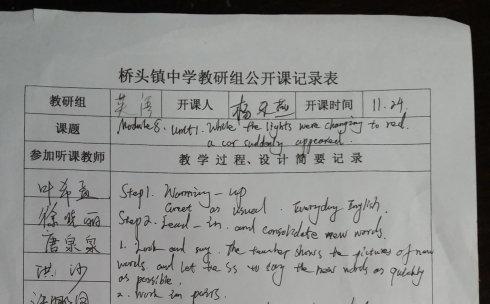 桥头镇中学教研组公开课记录表
教研组 英语 开课人 杨 燕 开课时间 11.24.
课题 Module 8. Unit 1. While the lights were changing to red.
a car suddenly appeared.
参加听课教师 教学过程、设计简要记录
叶希孟 Step 1. Warming-up
Greet as usual. Everyday English.
徐晓丽 Step 2. Lead-in. and consolidate new words.
唐泉泉 1. Look and say. The teacher shows the pictures of new
洪沙 words. and let the Ss to say the new words as quickly
as possible.
2. Work in pairs.